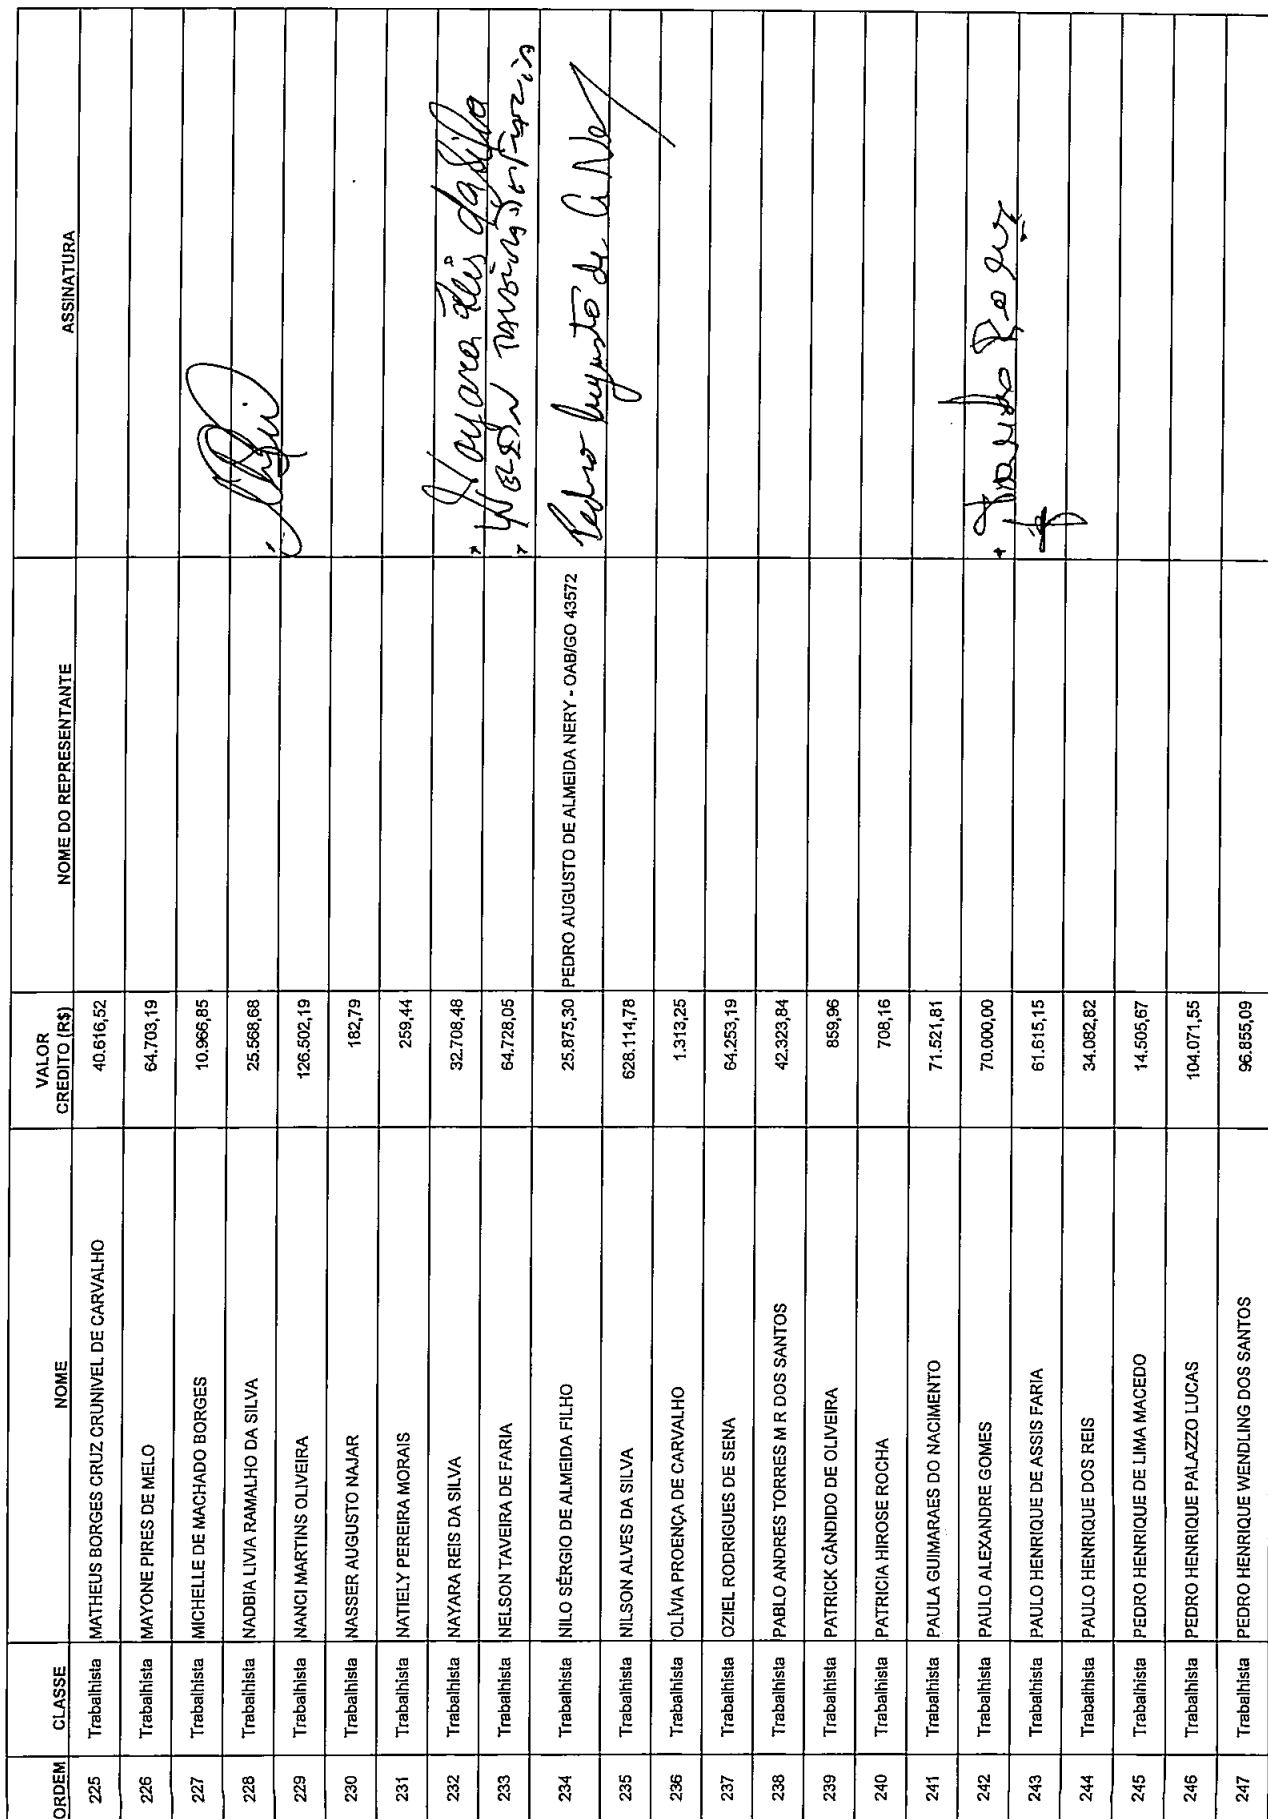 ORDEM CLASSE NOME VALOR CREDITO (R$) NOME DO REPRESENTANTE ASSINATURA
225 Trabalhista MATHEUS BORGES CRUZ CRUNIVEL DE CARVALHO 40.616,52
226 Trabalhista MAYONE PIRES DE MELO 64.703,19
227 Trabalhista MICHELLE DE MACHADO BORGES 10.966,85
228 Trabalhista NADBIA LIVIA RAMALHO DA SILVA 25.568,68
229 Trabalhista NANCI MARTINS OLIVEIRA 126.502,19
230 Trabalhista NASSER AUGUSTO NAJAR 182,79
231 Trabalhista NATIELY PEREIRA MORAIS 259,44
232 Trabalhista NAYARA REIS DA SILVA 32.708,48 Nayara Reis da Silva
233 Trabalhista NELSON TAVEIRA DE FARIA 64.728,05 NELSON
234 Trabalhista NILO SÉRGIO DE ALMEIDA FILHO 25.875,30 PEDRO AUGUSTO DE ALMEIDA NERY - OAB/GO 43572 Pedro Augusto de A. Nery
235 Trabalhista NILSON ALVES DA SILVA 628.114,78
236 Trabalhista OLÍVIA PROENÇA DE CARVALHO 1.313,25
237 Trabalhista OZIEL RODRIGUES DE SENA 64.253,19
238 Trabalhista PABLO ANDRES TORRES M R DOS SANTOS 42.323,84
239 Trabalhista PATRICK CÂNDIDO DE OLIVEIRA 859,96
240 Trabalhista PATRICIA HIROSE ROCHA 708,16
241 Trabalhista PAULA GUIMARAES DO NACIMENTO 71.521,81
242 Trabalhista PAULO ALEXANDRE GOMES 70.000,00
243 Trabalhista PAULO HENRIQUE DE ASSIS FARIA 61.615,15
244 Trabalhista PAULO HENRIQUE DOS REIS 34.082,82
245 Trabalhista PEDRO HENRIQUE DE LIMA MACEDO 14.505,67
246 Trabalhista PEDRO HENRIQUE PALAZZO LUCAS 104.071,55
247 Trabalhista PEDRO HENRIQUE WENDLING DOS SANTOS 96.855,09